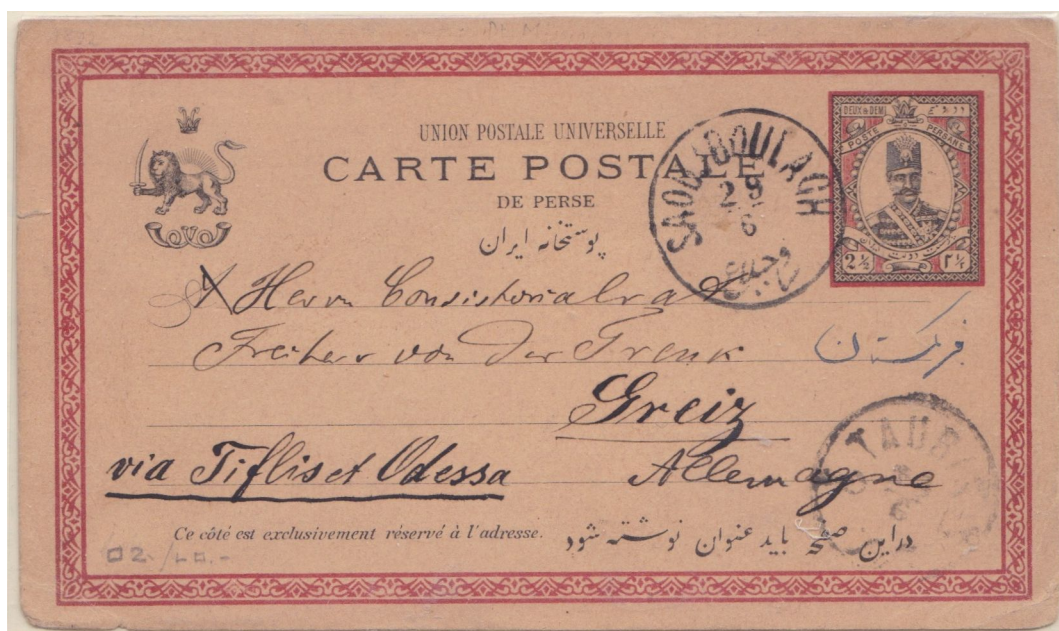 UNION POSTALE UNIVERSELLE
CARTE POSTALE
DE PERSE
پوستخانه ایران
DEUX & DEMI
POSTE PERSANE
2½ ۲½
SAOUDJBOULAGH
29
6
Herrn Consistorialrat
Freiherr von der Trenk
فرنگستان
Greiz
via Tiflis et Odessa
Allemagne
TAURIS
6
Ce côté est exclusivement réservé à l'adresse.
دراین صفحه باید عنوان نوشته شود